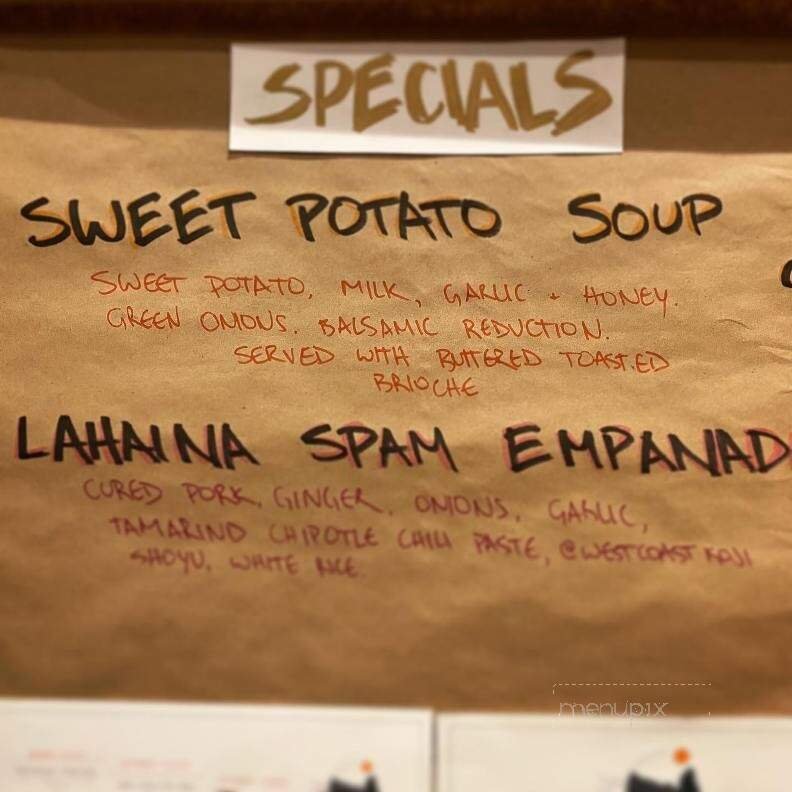 SPECIALS
SWEET POTATO SOUP
SWEET POTATO, MILK, GARLIC + HONEY.
GREEN ONIONS. BALSAMIC REDUCTION.
SERVED WITH BUTTERED TOASTED
BRIOCHE
LAHAINA SPAM EMPANAD
CURED PORK, GINGER, ONIONS, GARLIC,
TAMARIND CHIPOTLE CHILI PASTE, @WESTCOAST KOJI
SHOYU, WHITE RICE.
menupix